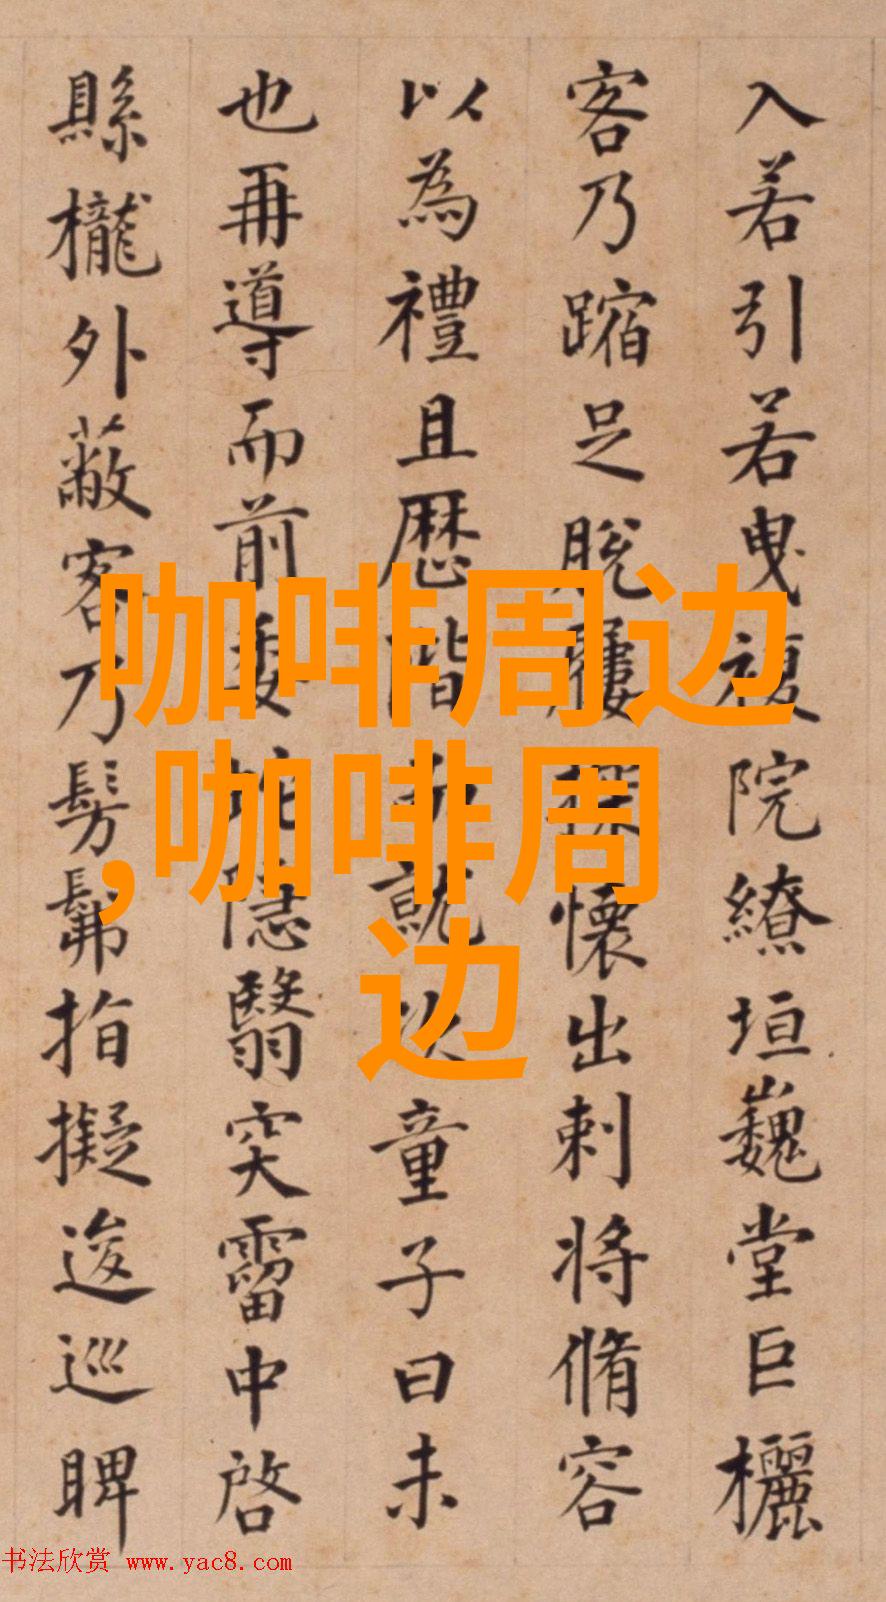 入若引若曳複院繚垣巍堂巨欐
客乃蹜足脫屨探懷出刺將脩容
以為禮且歷階而就次童子曰未
也再導而前委蛇隱翳突霤中啓
縣櫳外蔽客乃髣髴指擬逡巡睥
咖啡周边
,咖啡周
边
书法欣赏 www.yac8.com